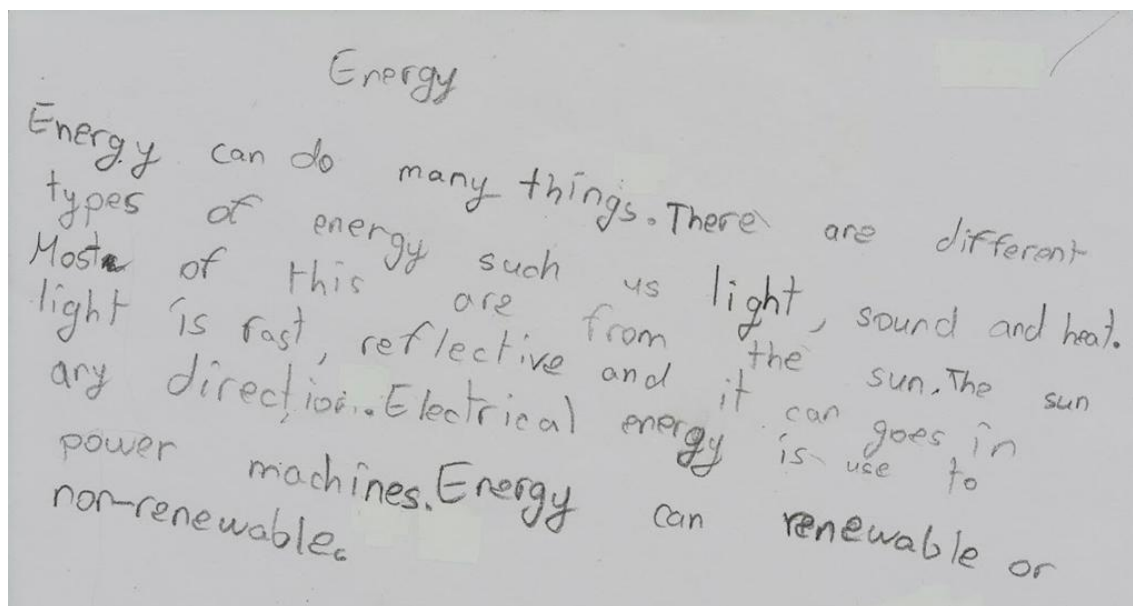 Energy
Energy can do many things. There are different
types of energy such us light, sound and heat.
Most of this are from the sun. The sun
light is fast, reflective and it can goes in
any direction. Electrical energy is use to
power machines. Energy can renewable or
non-renewable.